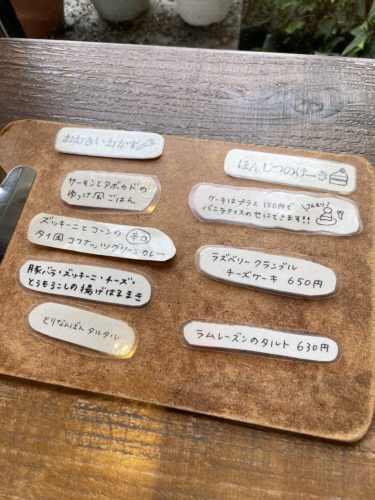 おおきいおかず
サーモンとアボカドの
ゆっけ風ごはん
ズッキーニとコーンの
タイ風ココナッツグリーンカレー
辛口
豚バラ・ズッキーニ・チーズ・
とうもろこしの揚げはるまき
とりなんばんタルタル
ほんじつのけーき
ケーキはプラス150円で
バニラアイスのせにできます!!
ラズベリークランブル
チーズケーキ 650円
ラムレーズンのタルト 630円